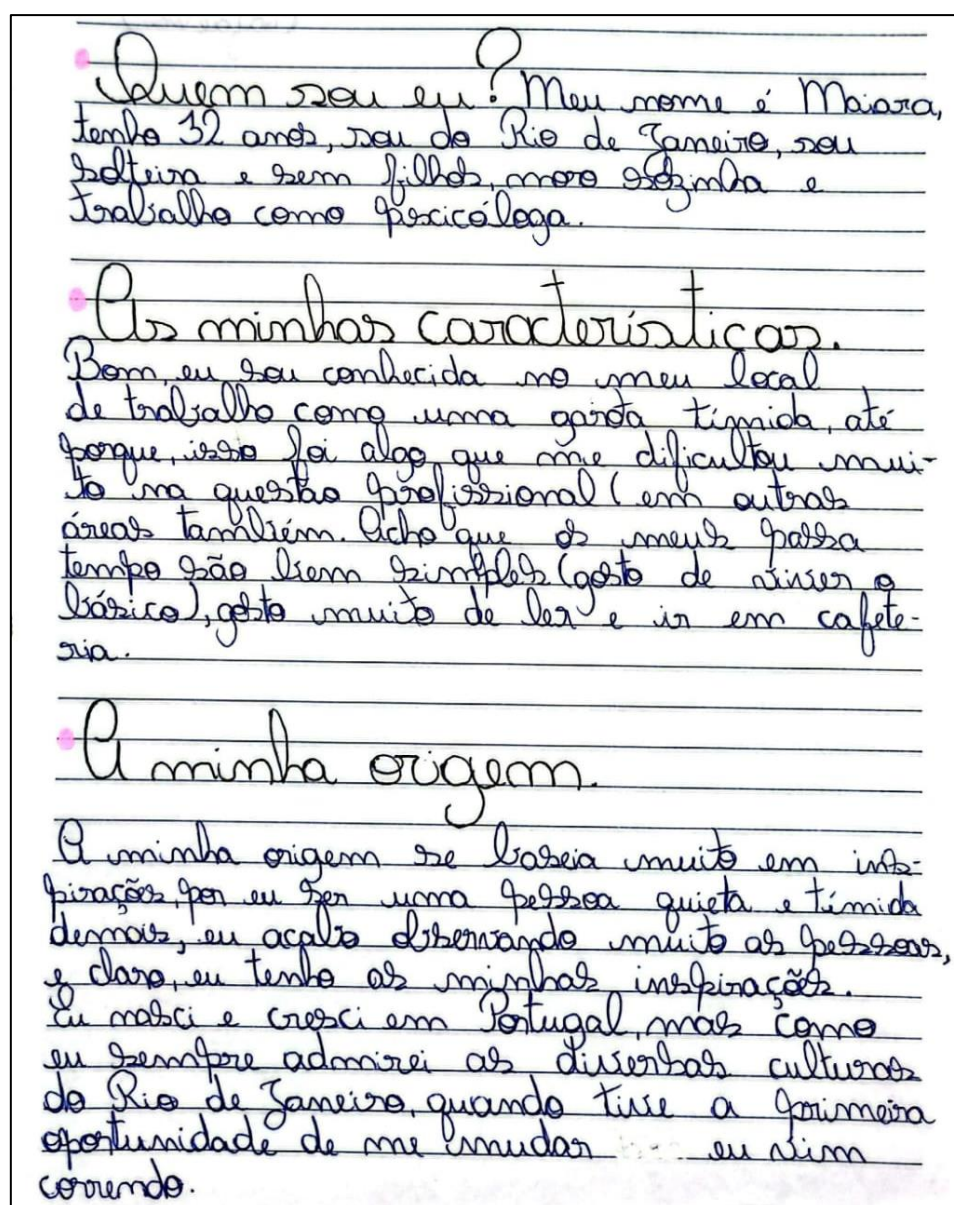 Quem sou eu? Meu nome é Maiara,
tenho 32 anos, sou do Rio de Janeiro, sou
solteira e sem filhos, moro sozinha e
trabalho como psicóloga.
As minhas características.
Bom, eu sou conhecida no meu local
de trabalho como uma garota tímida, até
porque, isso foi algo que me dificultou mui-
to na questão profissional (em outras
áreas também. Acho que os meus passa
tempo são bem simples (gosto de viver o
básico), gosto muito de ler e ir em cafete-
ria.
A minha origem.
A minha origem se baseia muito em ins-
pirações, por eu ser uma pessoa quieta e tímida
demais, eu acabo observando muito as pessoas,
e claro, eu tenho as minhas inspirações.
Eu nasci e cresci em Portugal, mas como
eu sempre admirei as diversas culturas
do Rio de Janeiro, quando tive a primeira
oportunidade de me mudar eu vim
correndo.